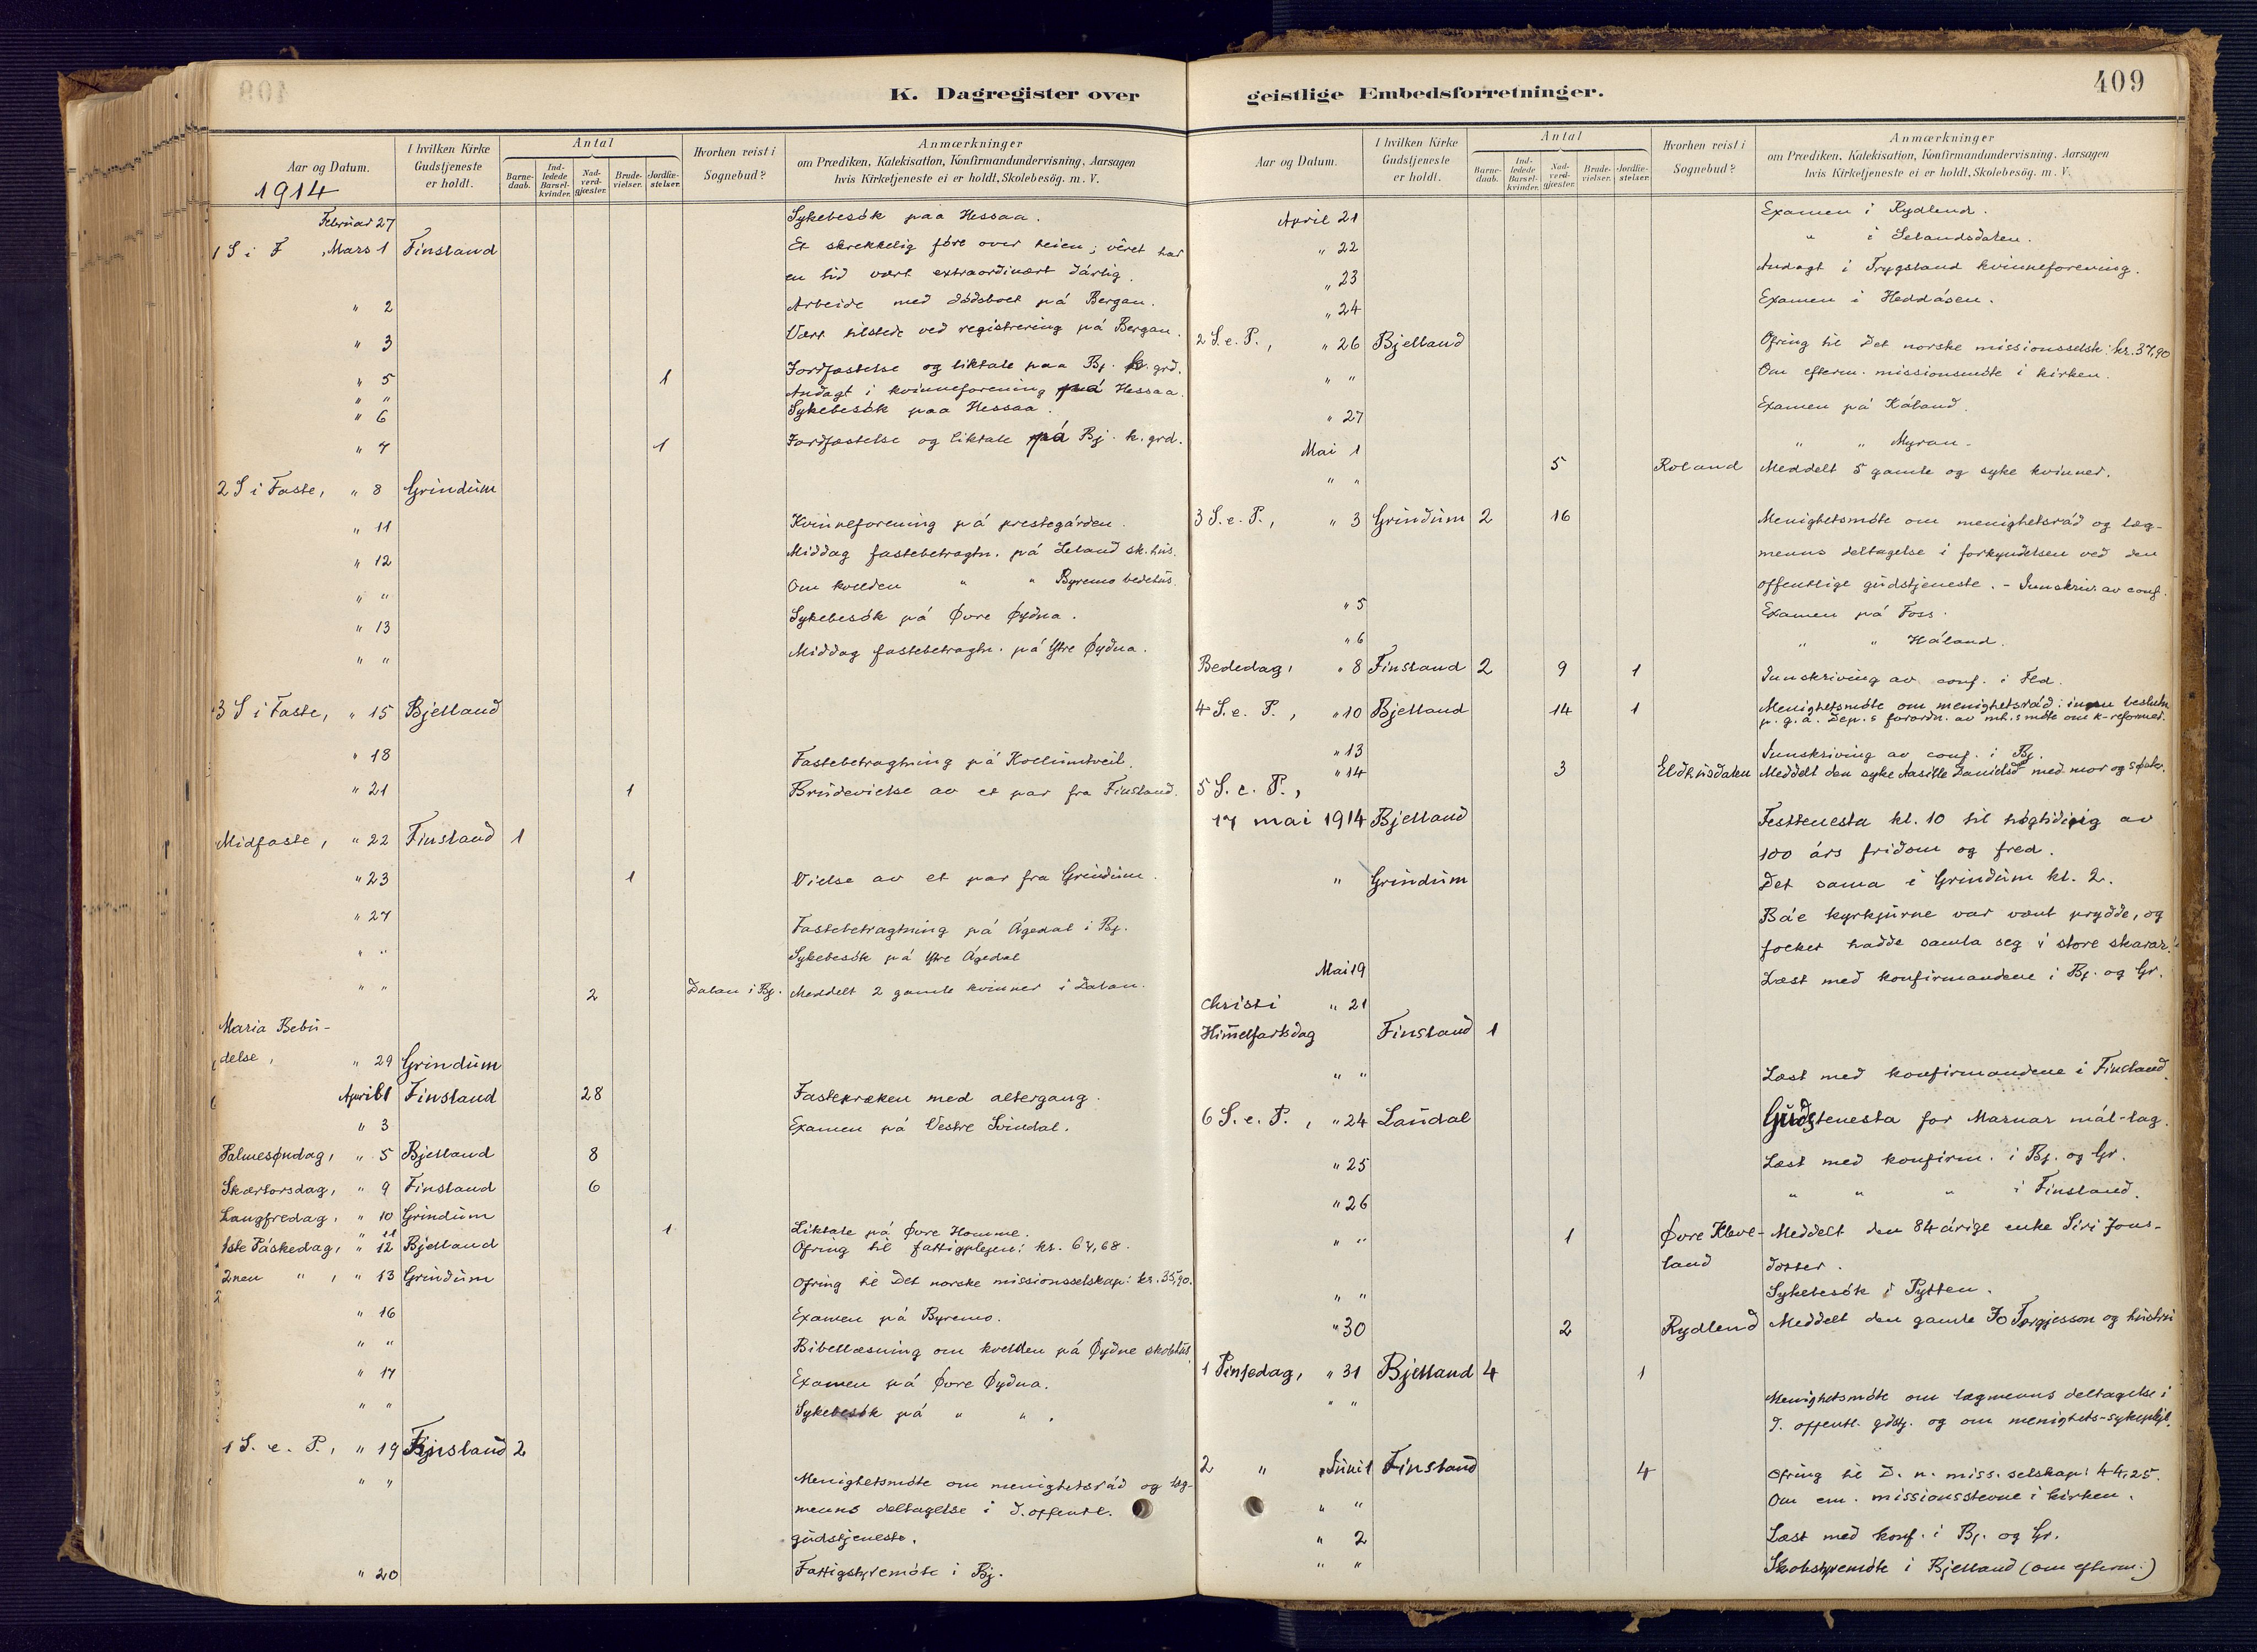 K. Dagregister over
Aar og Datum.
I hvilken Kirke Gudstjeneste er holdt.
Antal
Barne-daab.
Ind-ledede Barsel-kvinder.
Nad-verd-gjæster.
Brude-vielser.
Jordfæ-stelser.
Hvorhen reist i Sognebud?
Anmærkninger
om Prædiken, Katekisation, Konfirmandundervisning, Aarsagen
hvis Kirketjeneste ei er holdt, Skolebesög. m. V.
1914
Februar 27 Sykebesök paa Hessaa.
1 S i F , Mars 1 Finsland Et skrekkelig före over heien; vêret har
en tid vært extraordinært dårlig.
" 2 Arbeide med dödsboet på Bergan.
" 3 Vært tilstede ved registrering på Bergan.
" 5 1 Jordfæstelse og liktale paa Bj. k. grd.
" " Andagt i kvinneforening på Hessaa.
" 6 Sykebesök paa Hessaa.
" 7 1 Jordfæstelse og liktale på Bj. k. grd.
2 S i Faste, " 8 Grindum
" 11 Kvinneforening på prestegården.
" 12 Middag fastebetragtn. på Leland sk. hus.
" " Om kvelden " " Byremo bedehus.
" 13 Sykebesök på Øvre Øydna.
" " Middag fastebetragtn. på Ytre Øydna.
3 S i Faste, " 15 Bjelland
" 18 Fastebetragtning på Kollumtveit.
" 21 1 Brudevielse av et par fra Finsland.
Midfaste, " 22 Finsland 1
" 23 1 Vielse av et par fra Grindum.
" 27 Fastebetragtning på Ågedal i Bj.
" " Sykebesök på Ytre Ågedal
" " 2 Dalan i Bj. Meddelt 2 gamle kvinner i Dalan.
Maria Bebu-
delse, " 29 Grindum
April 1 Finsland 28 Fastepreken med altergang.
" 3 Examen på Vestre Svindal.
Palmesøndag, " 5 Bjelland 8
Skærtorsdag, " 9 Finsland 6
Langfredag, " 10 Grindum
" 11 1 Liktale på Øvre Homme.
1ste Påskedag, " 12 Bjelland Ofring til fattigplejen: kr. 67,68.
2nen " , " 13 Grindum Ofring til Det norske missionsselskap: kr. 35,90.
" 16 Examen på Byremo.
" " Bibellæsning om kvelden på Øydne skolehus.
" 17 Examen på Øvre Øydna.
" " Sykebesök på " " .
1 S. e. P., " 19 Finsland 2
" " Menighetsmöte om menighetsråd og læg-
menns deltagelse i d. offentl.
gudstjeneste.
" 20 Fattigstyremöte i Bj.
geistlige Embedsforretninger.
409
Aar og Datum.
I hvilken Kirke Gudstjeneste er holdt.
Antal
Barne-daab.
Ind-ledede Barsel-kvinder.
Nad-verd-gjæster.
Brude-vielser.
Jordfæ-stelser.
Hvorhen reist i Sognebud?
Anmærkninger
om Prædiken, Katekisation, Konfirmandundervisning, Aarsagen
hvis Kirketjeneste ei er holdt, Skolebesög. m. V.
April 21 Examen i Rydlend.
" 22 " i Selandsdalen.
" 23 Andagt i Trygsland kvinneforening.
" 24 Examen i Heddåsen.
2 S. e. P., " 26 Bjelland Ofring til Det norske missionsselsk: kr. 37,90
" " Om efterm. missionsmöte i kirken.
" 27 Examen på Kåland.
Mai 1 " " Myran.
" " 5 Roland Meddelt 5 gamle og syke kvinner.
3 S. e. P., " 3 Grindum 2 16 Menighetsmöte om menighetsråd og læg-
menns deltagelse i forkyndelsen ved den
offentlige gudstjeneste. - Innskriv. av conf.
" 5 Examen på Foss.
" 6 " " Håland.
Bededag, " 8 Finsland 2 9 1 Innskriving av conf. i Fld.
4 S. e. P., " 10 Bjelland 14 1 Menighetsmöte om menighetsråd: ingen beslutn.
p. g. a. Dep.s forordn. av mh.s möte om k-reformer.
" 13 Innskriving av conf. i Bj.
" 14 3 Eldhusdalen Meddelt den syke Aasille Danielsd. med mor og søster.
5 S. e. P.,
17 mai 1914 Bjelland Festtenesta kl. 10 til høgtiding av
100 års fridom og fred.
" Grindum Det sama i Grindum kl. 2.
Båe kyrkjurne var vænt prydde, og
folket hadde samla seg i store skarar.
Mai 19 Læst med konfirmandene i Bj. og Gr.
Christi " 21
Himelfartsdag Finsland 1
" " Læst med konfirmandene i Finsland.
6 S. e. P., " 24 Laudal Gudstenesta for Marnar mål-lag.
" 25 Læst med konfirm. i Bj. og Gr.
" 26 " " " i Finsland.
" " 1 Øvre Kleve-land Meddelt den 84 årige enke Siri Jons-
dotter.
" " Sykebesök i Pytten.
" 30 2 Rydlend Meddelt den gamle Jo Torgjesson og hustru
1 Pinsedag, " 31 Bjelland 4 1
" " Menighetsmöte om lægmenns deltagelse i
d. offentl. gdstj. og om menighets-sykepleje.
2 " Juni 1 Finsland 4 Ofring til D. n. miss. selskap: 44,25.
" " Om em. missionsstevne i kirken.
" 2 Læst med konf. i Bj. og Gr.
" " Skolestyremöte i Bjelland (om efterm.)